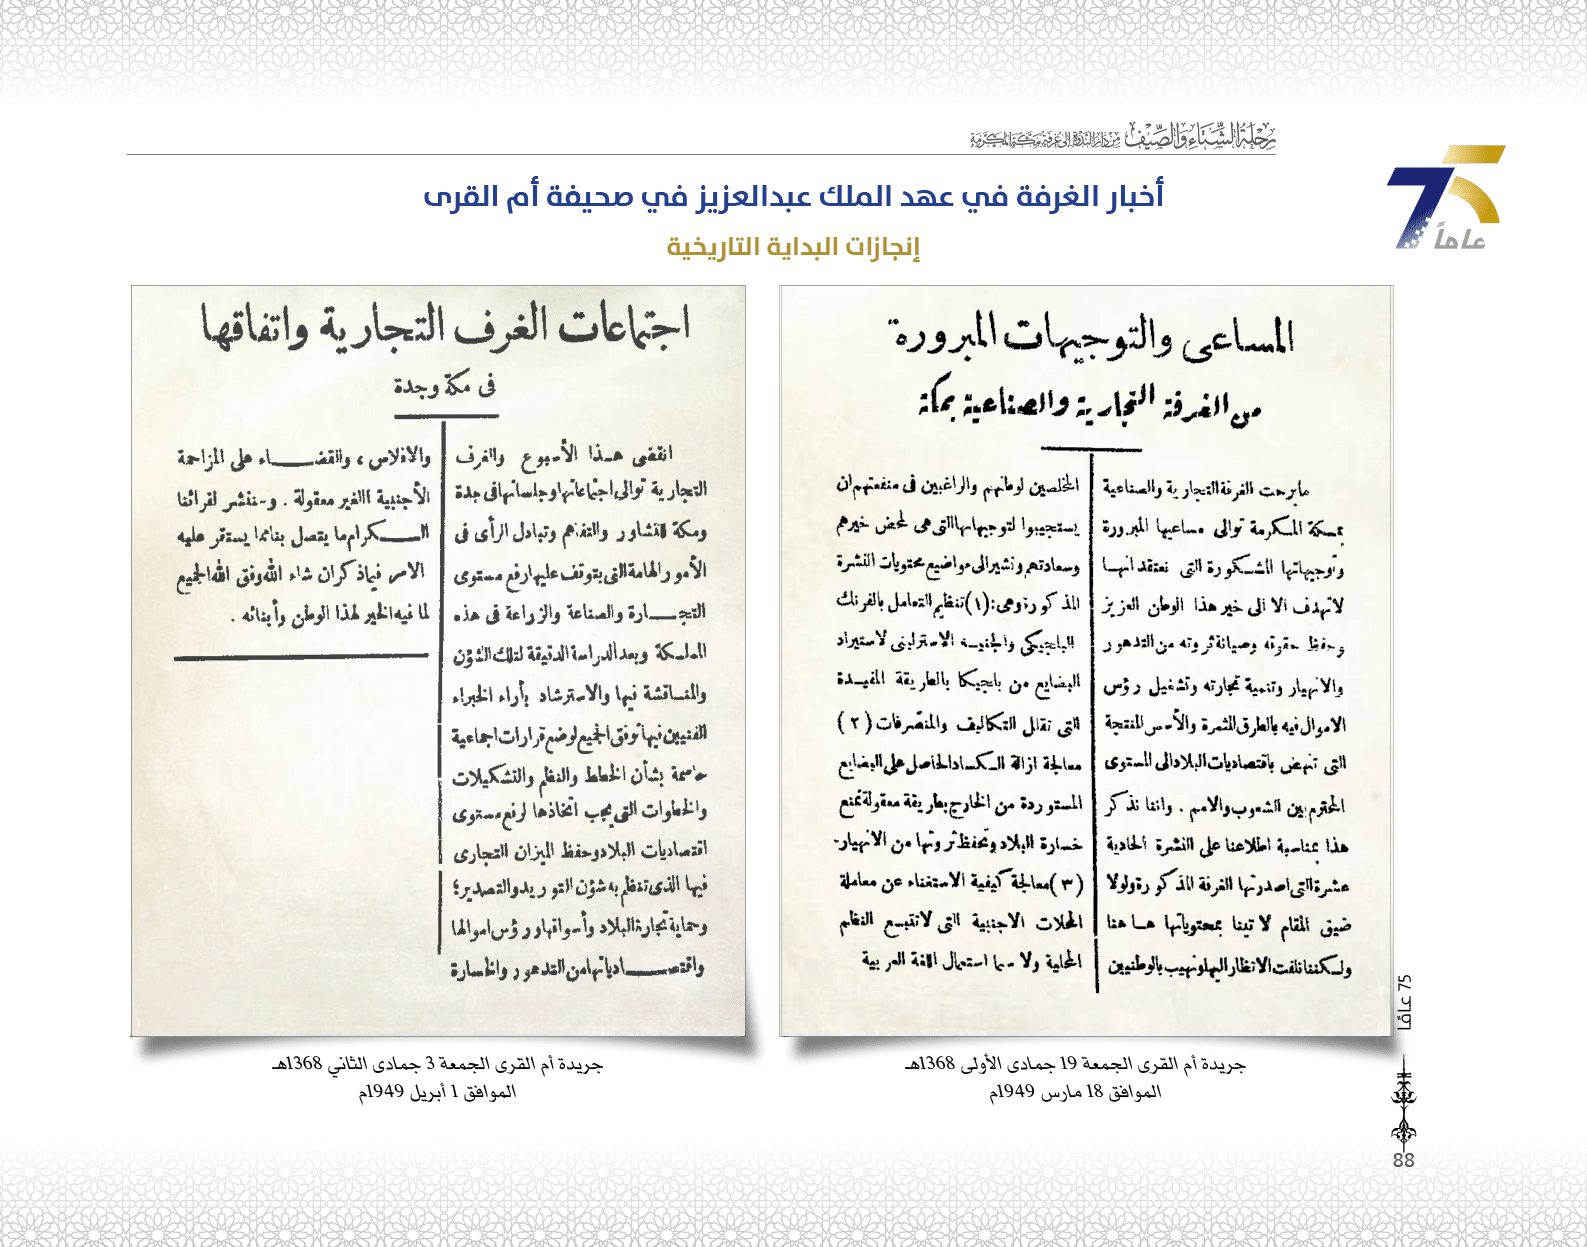 رحلة الشتاء والصيف من دار الندوة إلى غرفة مكة المكرمة
75
عاماً
أخبار الغرفة في عهد الملك عبدالعزيز في صحيفة أم القرى
إنجازات البداية التاريخية
المساعى والتوجيهات المبرورة
من الغرفة التجارية والصناعية بمكة
ما برحت الغرفة التجارية والصناعية
بمكة المكرمة توالى مساعيها المبرورة
وتوجيهاتها المشكورة التى نعتقد انها
لا تهدف الا الى خير هذا الوطن العزيز
وحفظ حقوقه وصيانة ثروته من التدهور
والانهيار وتنمية تجارته وتشغيل رؤس
الاموال فيه بالطرق المثمرة والأسس المنتجة
التى تنهض باقتصاديات البلاد الى المستوى
المحترم بين الشعوب والامم . واننا نذكر
هذا بمناسبة اطلاعنا على النشرة الحادية
عشرة التى اصدرتها الغرفة المذكورة ولولا
ضيق المقام لاتينا بمحتوياتها هاهنا
ولكننا نلفت الانظار اليها ونهيب بالوطنيين
المخلصين لوطنهم والراغبين فى منفعتهم ان
يستجيبوا لتوجيهاتها التى هى لمحض خيرهم
وسعادتهم ونشير الى مواضيع محتويات النشرة
المذكورة وهى : (١) تنظيم التعامل بالفرنك
البلجيكى والجنيه الاسترلينى لاستيراد
البضايع من بلجيكا بالطريقة المفيدة
التى تقلل التكاليف والمنصرفات (٢)
معالجة ازالة الكساد الحاصل على البضايع
المستوردة من الخارج بطريقة معقولة تمنع
خسارة البلاد وتحفظ ثروتها من الانهيار-
(٣) معالجة كيفية الاستغناء عن معاملة
المحلات الاجنبية التى لا تتبع النظم
المحلية ولا سيما استعمال اللغة العربية
جريدة أم القرى الجمعة 19 جمادى الأولى 1368هـ
الموافق 18 مارس 1949م
اجتماعات الغرف التجارية واتفاقها
فى مكة وجدة
انقضى هذا الأسبوع والغرف
التجارية توالى اجتماعاتها وجلساتها فى جدة
ومكة للتشاور والتفاهم وتبادل الرأى فى
الأمور الهامة التى يتوقف عليها رفع مستوى
التجارة والصناعة والزراعة فى هذه
المملكة وبعد الدراسة الدقيقة لتلك الشؤن
والمناقشة فيها والاسترشاد بأراء الخبراء
الفنيين فيها توفق الجميع لوضع قرارات اجماعية
حاسمة بشأن الخطط والنظم والتشكيلات
والخطوات التى يجب اتخاذها لرفع مستوى
اقتصاديات البلاد وحفظ الميزان التجارى
فيها الذى تنظم به شؤن التوريد والتصدير ؛
وحماية تجارة البلاد وأسواقها ورؤس اموالها
واقتصادياتها من التدهور والخسارة
والافلاس ، والقضاء على المزاحمة
الأجنبية الغير معقولة . وسننشر لقرائنا
الكرام ما يتصل بنا عما يستقر عليه
الامر فيما ذكر ان شاء الله وفق الله الجميع
لما فيه الخير لهذا الوطن وأبنائه .
جريدة أم القرى الجمعة 3 جمادى الثاني 1368هـ
الموافق 1 أبريل 1949م
75 عامًا
88